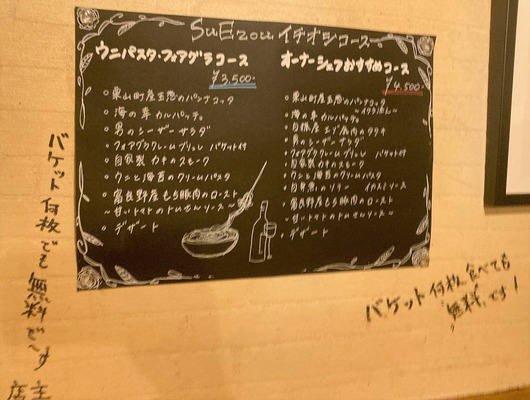 SuEzou イチオシコース
ウニパスタ・フォアグラコース
¥3,500-
○栗山町産玉恋のパンナコッタ
○海の幸カルパッチョ
○男のシーザーサラダ
○フォアグラクレームブリュレ バケット付
○自家製カキのスモーク
○ウニと海苔のクリームパスタ
○富良野産もち豚肉のロースト
〜甘いトマトの ソース〜
○デザート
オーナーシェフおすすめコース
¥4,500-
○栗山町産玉恋のパンナコッタ
○海の幸カルパッチョ
○白糠産エゾ鹿肉のタタキ
○男のシーザーサラダ
○フォアグラクレームブリュレ バケット付
○自家製カキのスモーク
○ウニと海苔のクリームパスタ
○白身魚の イカスミソース
○富良野産もち豚肉のロースト
〜甘いトマトの ソース〜
○デザート
バケット何枚でも無料で〜す
店主
バケット何枚食べても
"無料"です!